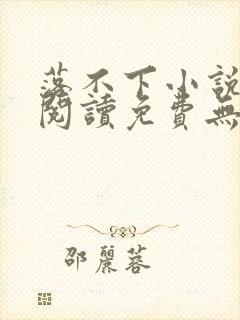 落不下小説
閱讀免費無
邵麗蓉